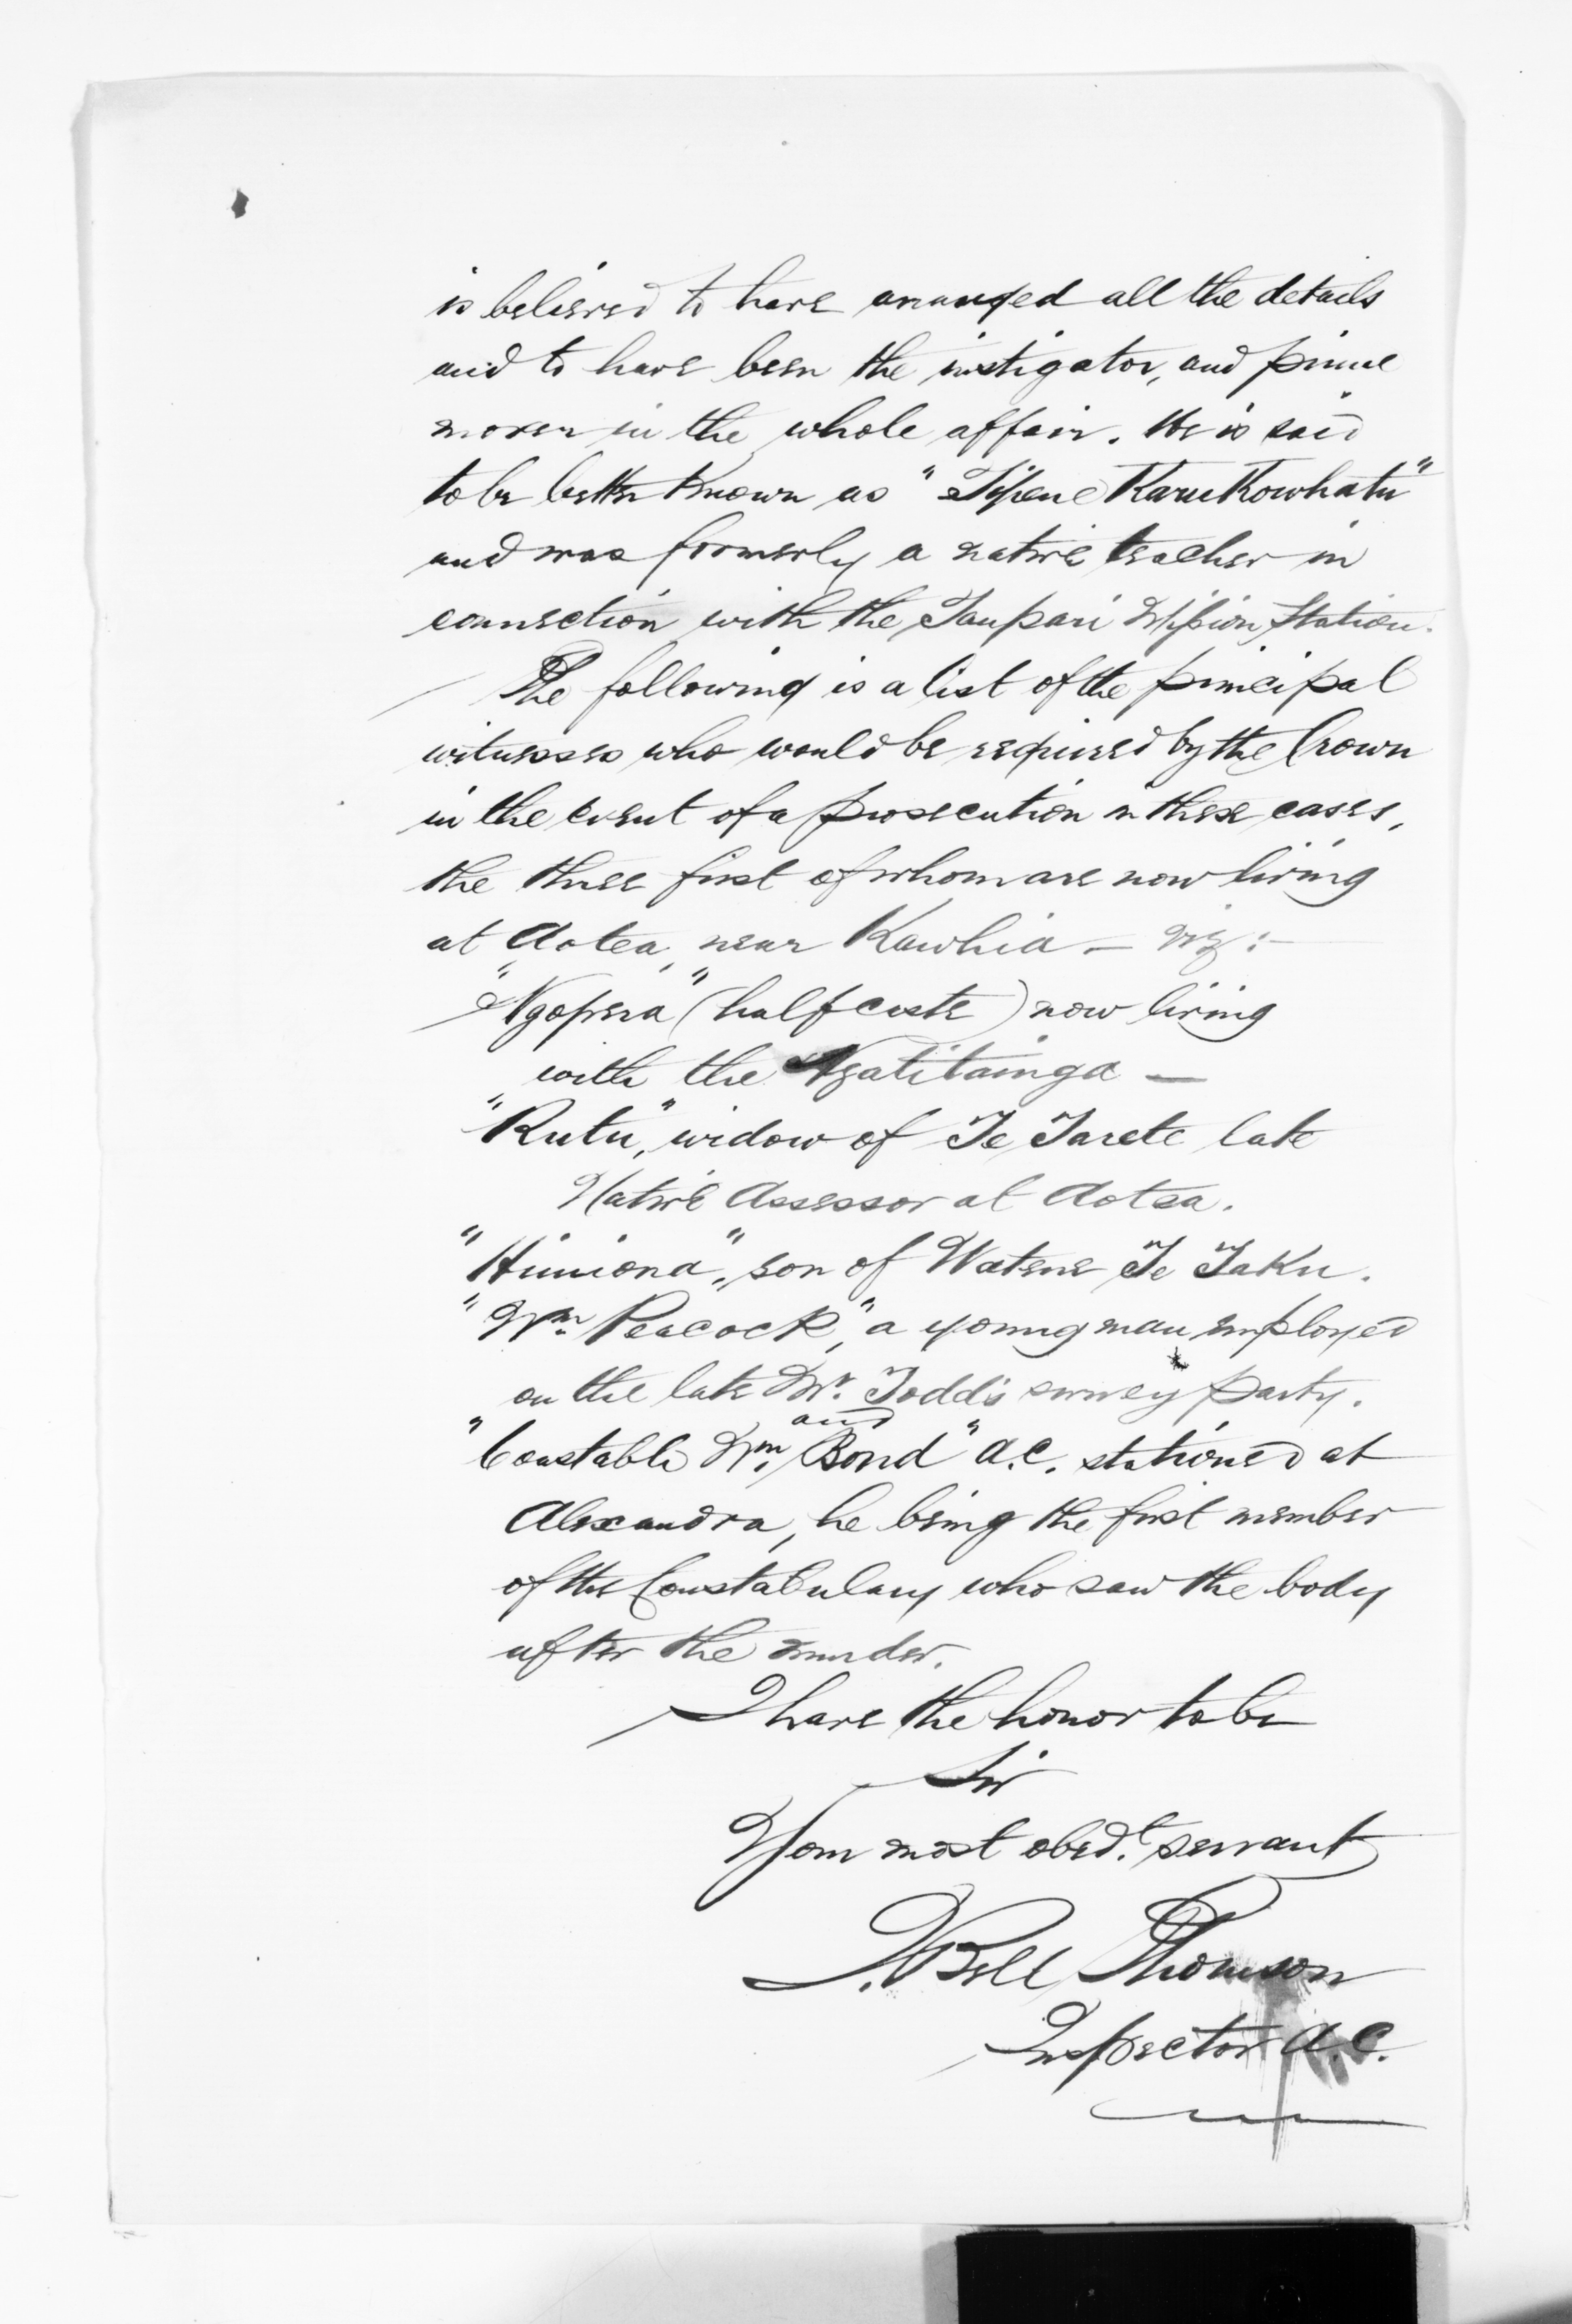 is believed to have arranged all the details
and to have been the instigator, and prime
mover in the whole affair. He is said
to be better known as "Tipene Karukowhatu"
and was formerly a native teacher in
connection with the Taupari Mission Station.
The following is a list of the principal
witnesses who would be required by the Crown
in the event of a prosecution in these cases,
the three first of whom are now living
at Aotea, near Kawhia — viz:-
"Ngapera" (half caste) now living
with the Ngatitainga —
"Rutu", widow of Te Tarete late
Native Assessor at Aotea.
"Himiona", son of Watene Te Taku.
"Wm. Peacock", a young man employed
on the late Mr. Todd's survey party.
and
"Constable Wm. Bond" A.C. stationed at
Alexandra, he being the first member
of the Constabulary who saw the body
after the murder.
I have the honor to be
Sir
Your most obedt. servant
J. Bell Thomson
Inspector A.C.